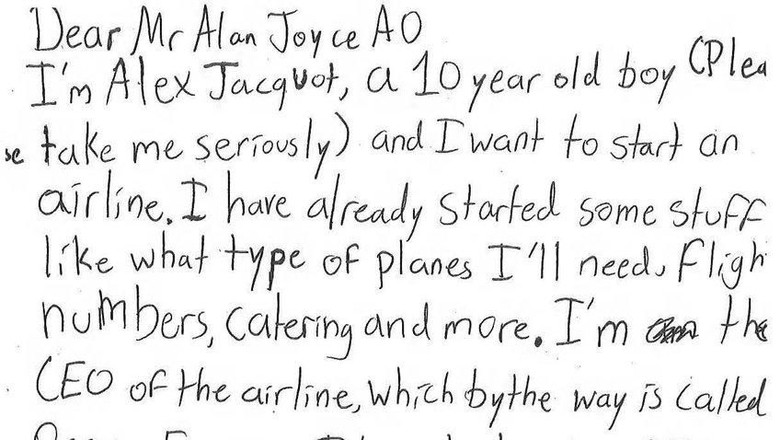 Dear Mr Alan Joyce AO
I'm Alex Jacquot, a 10 year old boy (Plea
se take me seriously) and I want to start an
airline. I have already started some stuff
like what type of planes I'll need, fligh
numbers, catering and more. I'm the
CEO of the airline, which by the way is called